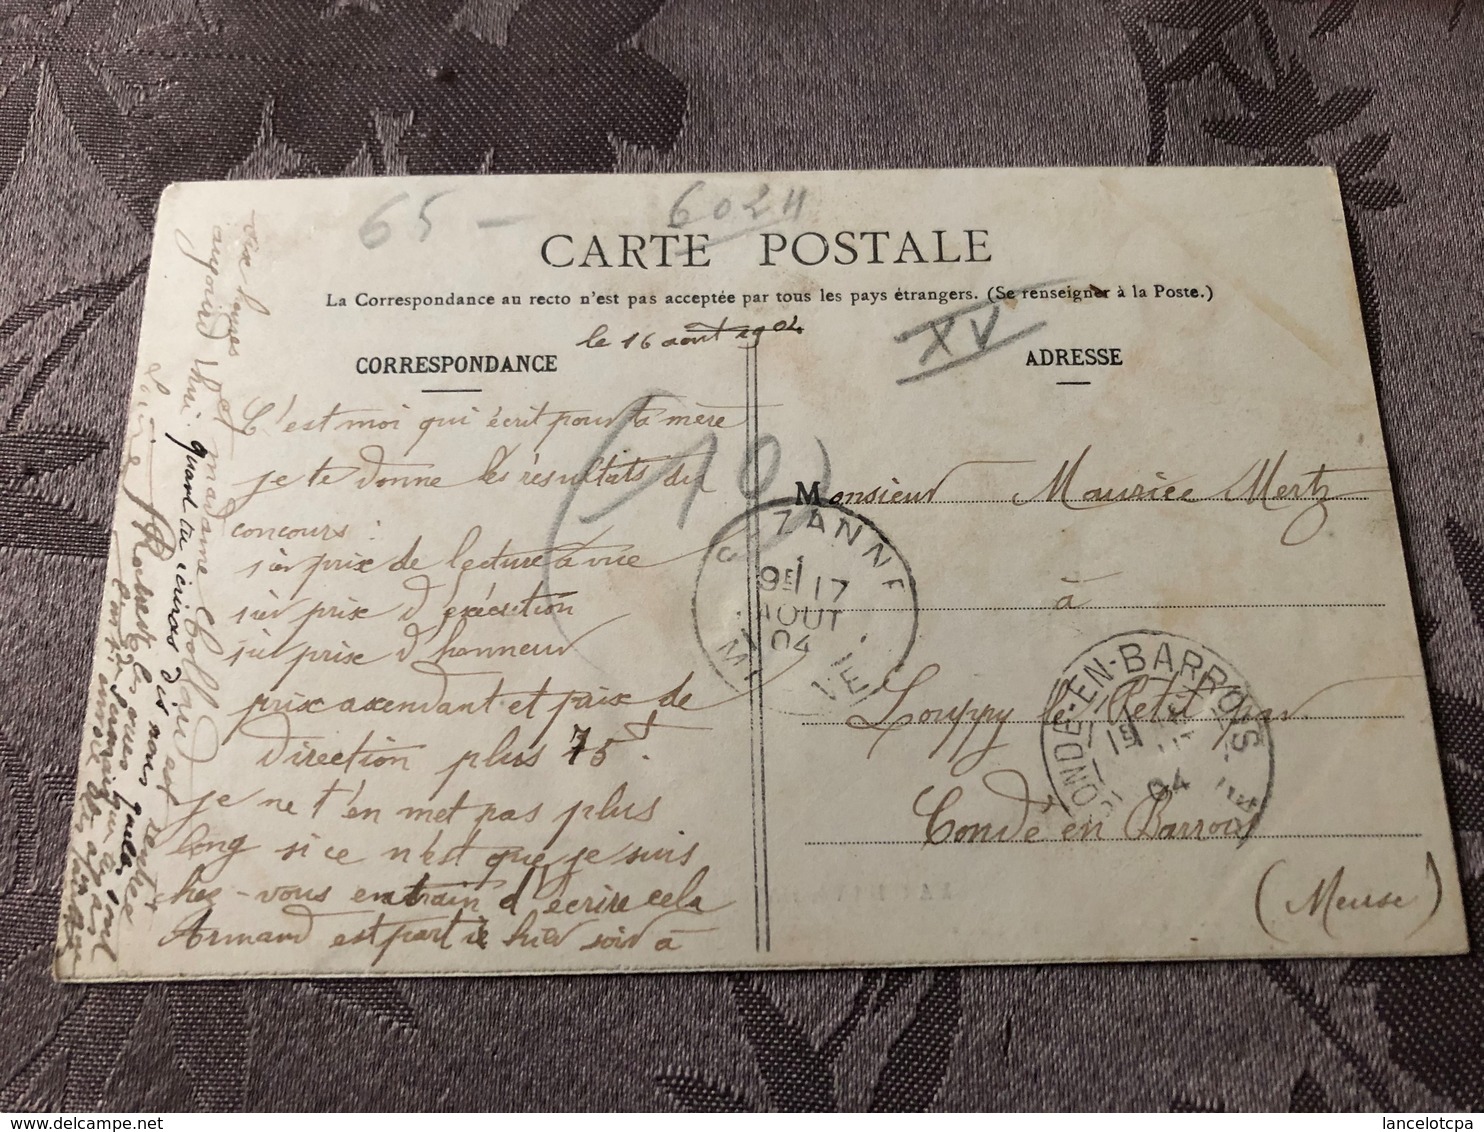 65 — 6024
CARTE POSTALE
La Correspondance au recto n'est pas acceptée par tous les pays étrangers. (Se renseigner à la Poste.)
XV
le 16 aout 1904
CORRESPONDANCE
ADRESSE
C'est moi qui écrit pour ta mère
je te donne les résultats du
concours :
1er prix de lecture à vue
1er prix d'exécution
1er prix d'honneur
prix ascendant et prix de
direction plus 75f.
je ne t'en met pas plus
long si ce n'est que je suis
chez-vous en train d'écrire cela
Armand est parti hier soir à
six heures et madame Chollaud est
aujourd'hui. quand tu écriras dis nous
Louise
(10)
Monsieur Maurice Mertz
à
Louppy le Petit par
Condé en Barrois
(Meuse)
ZANNE
9E 17
AOUT
04
CONDÉ-EN-BARROIS
04
lancelotcpa